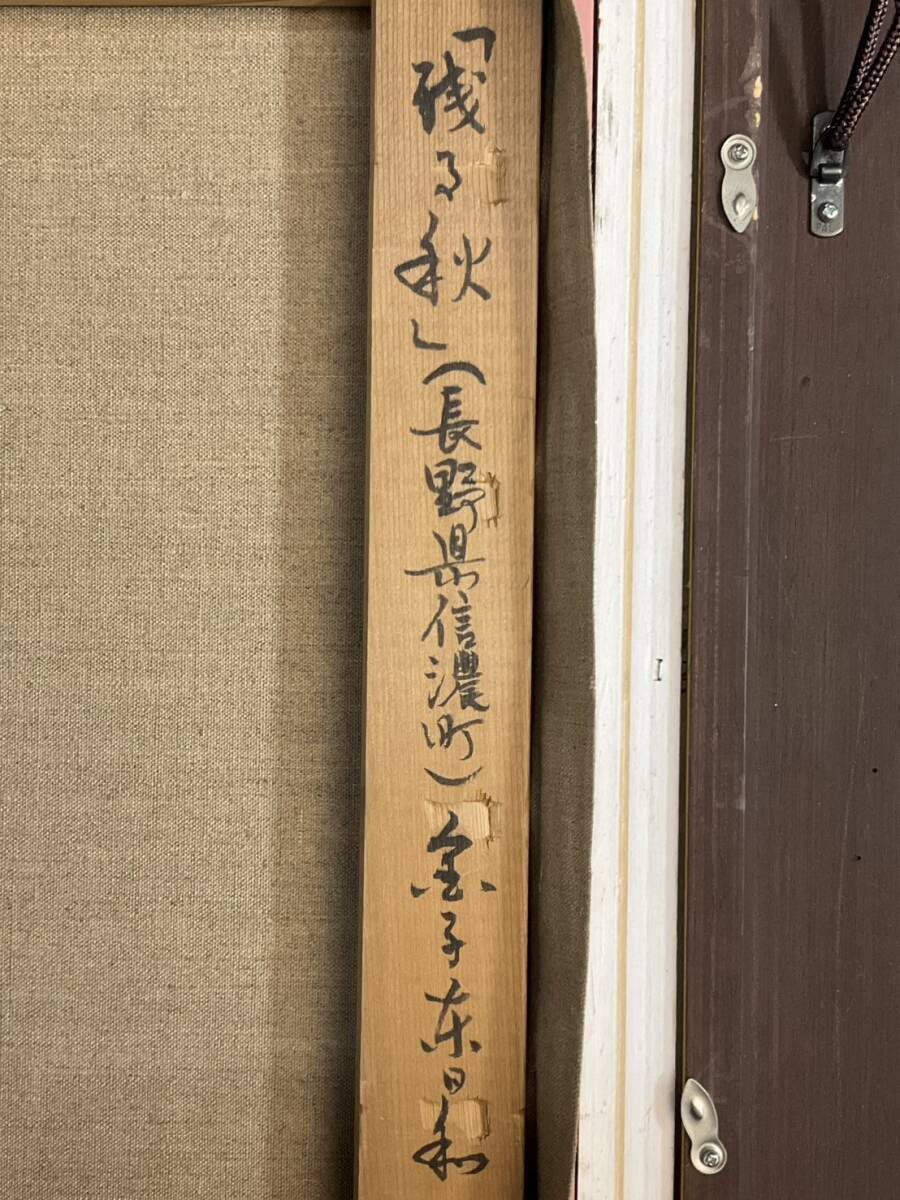 「残る秋」(長野県信濃町)金子東日和